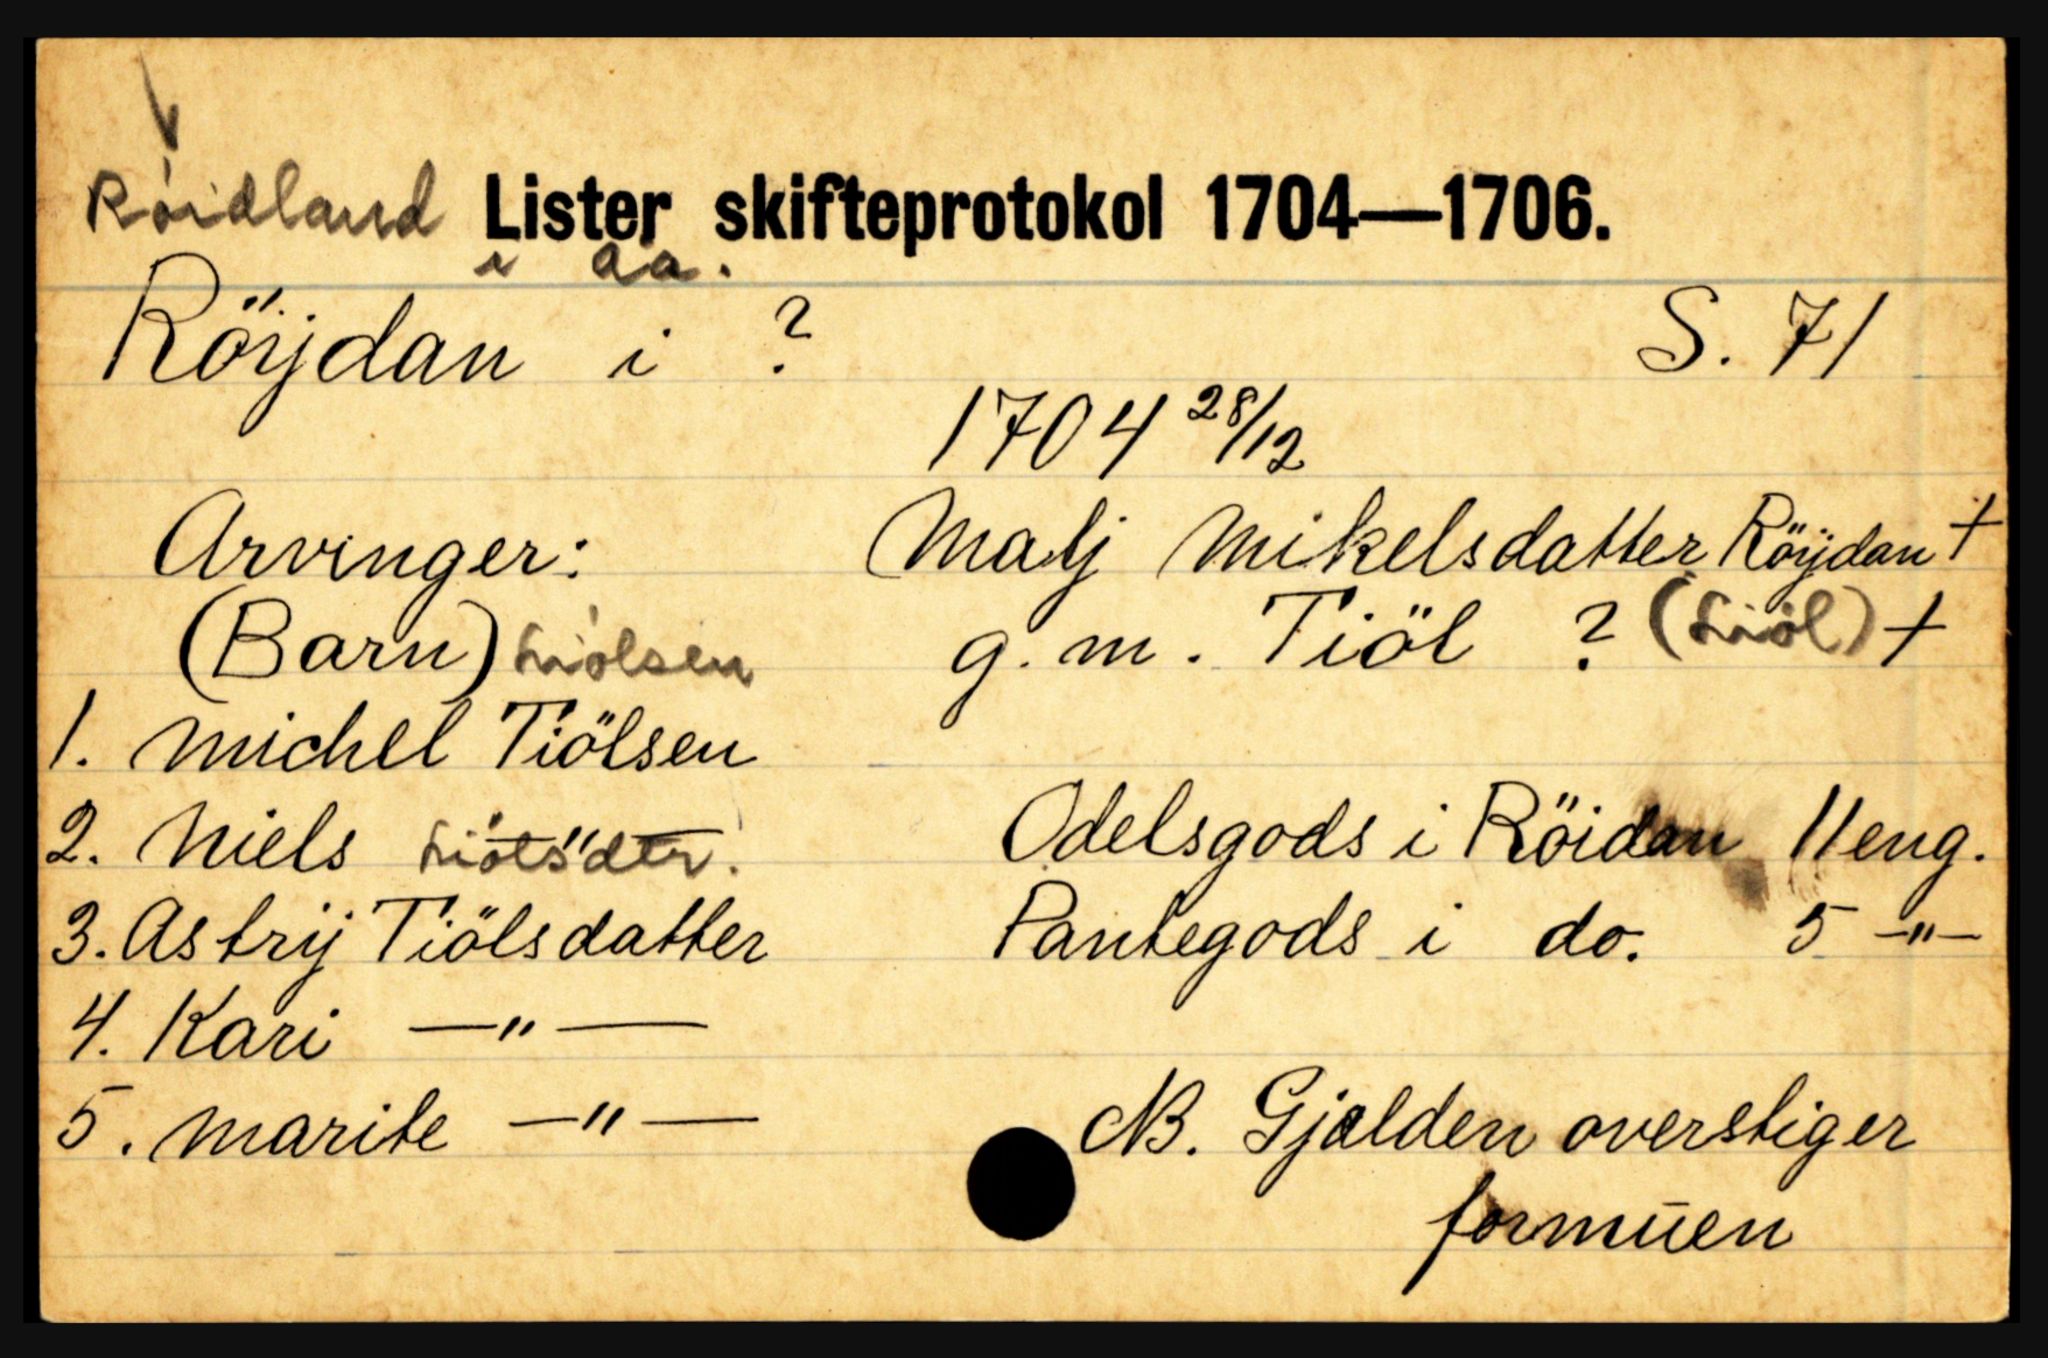 Röidland Lister skifteprotokol 1704—1706.
i Aa.
Röijdan i ? S. 71
1704 28/12
Arvinger: Malj Mikelsdatter Röijdan +
(Barn) Liölsen g. m. Tiöl ? (Liöl) +
1. Michel Tiölsen
2. Niels Liöls"dtr. Odelsgods i Röidan 11 eng.
3. Astrij Tiölsdatter Pantegods i do. 5 —"—
4. Kari —"—
5. Marite —"— NB. Gjelden overstiger
formuen